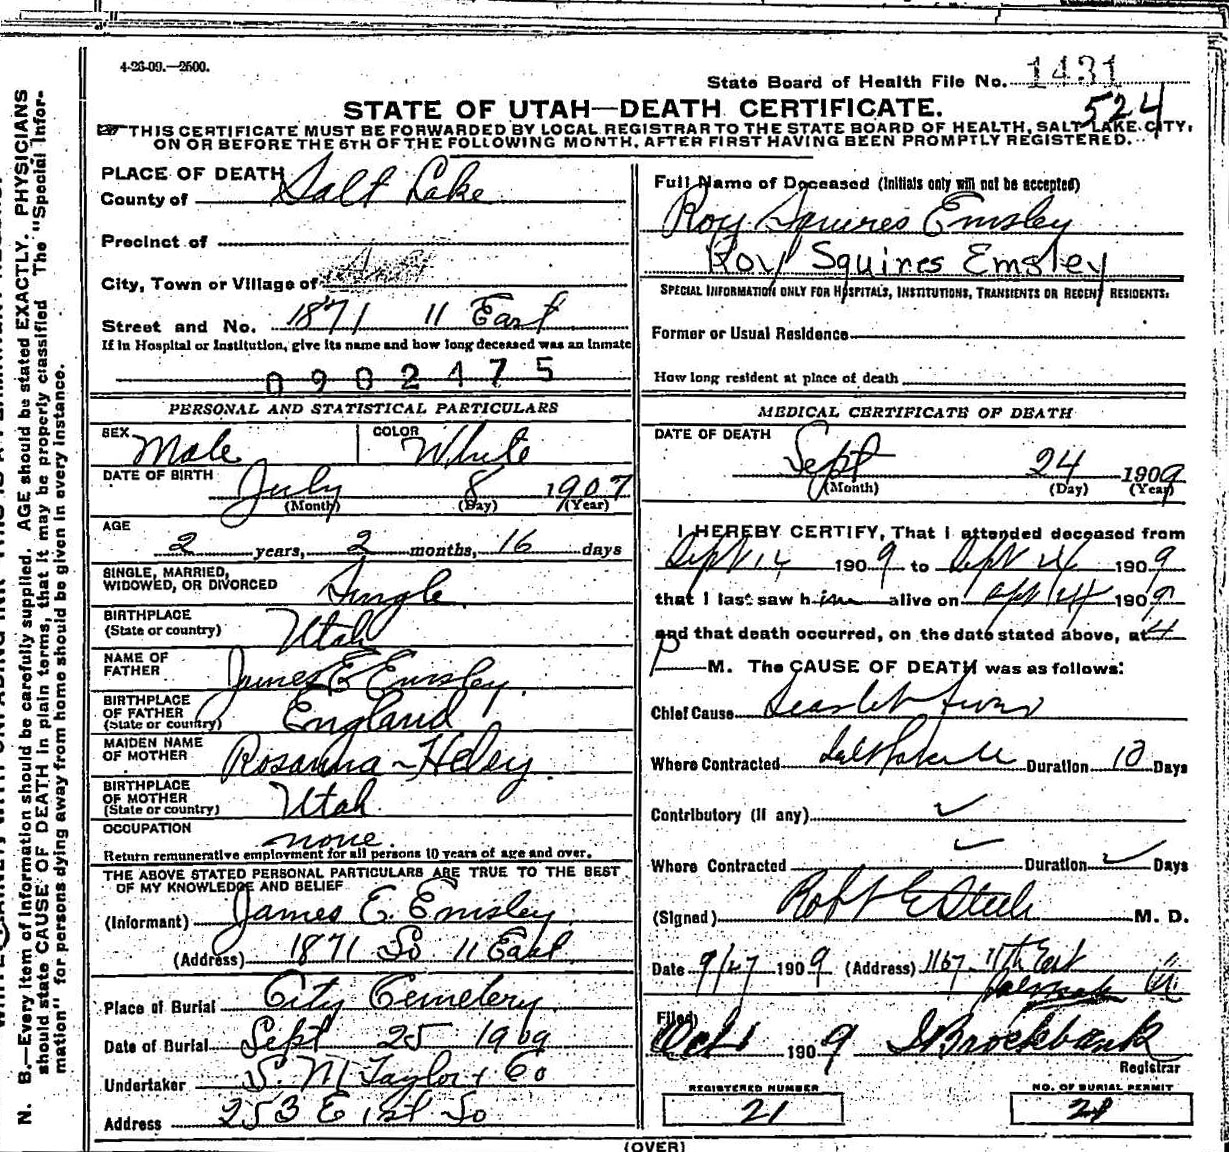 4-26-09.—2500.
State Board of Health File No. 1431
524
STATE OF UTAH—DEATH CERTIFICATE.
☞THIS CERTIFICATE MUST BE FORWARDED BY LOCAL REGISTRAR TO THE STATE BOARD OF HEALTH, SALT LAKE CITY,
ON OR BEFORE THE 5TH OF THE FOLLOWING MONTH, AFTER FIRST HAVING BEEN PROMPTLY REGISTERED.
PLACE OF DEATH
County of Salt Lake
Precinct of
City, Town or Village of
Street and No. 1871 11 East
If in Hospital or Institution, give its name and how long deceased was an Inmate
0902475
PERSONAL AND STATISTICAL PARTICULARS
SEX Male COLOR White
DATE OF BIRTH July 8 1907
(Month) (Day) (Year)
AGE
2 years, 2 months, 16 days
SINGLE, MARRIED,
WIDOWED, OR DIVORCED Single
BIRTHPLACE
(State or country) Utah
NAME OF
FATHER James E Emsley
BIRTHPLACE
OF FATHER
(State or country) England
MAIDEN NAME
OF MOTHER Rosanna Heley
BIRTHPLACE
OF MOTHER
(State or country) Utah
OCCUPATION none.
Return remunerative employment for all persons 10 years of age and over.
THE ABOVE STATED PERSONAL PARTICULARS ARE TRUE TO THE BEST
OF MY KNOWLEDGE AND BELIEF
(Informant) James E. Emsley
(Address) 1871 So 11 East
Place of Burial City Cemetery
Date of Burial Sept 25 1909
Undertaker S. M Taylor + Co
Address 253 E 1st So
Full Name of Deceased (Initials only will not be accepted)
Roy Squires Emsley
Roy Squires Emsley
SPECIAL INFORMATION ONLY FOR HOSPITALS, INSTITUTIONS, TRANSIENTS OR RECENT RESIDENTS.
Former or Usual Residence
How long resident at place of death
MEDICAL CERTIFICATE OF DEATH
DATE OF DEATH
Sept 24 1909
(Month) (Day) (Year)
I HEREBY CERTIFY, That I attended deceased from
Sept 14 1909 to Sept 24 1909
that I last saw him alive on Sept 24 1909
and that death occurred, on the date stated above, at 4
P M. The CAUSE OF DEATH was as follows:
Chief Cause Scarlet Fever
Where Contracted Salt Lake Duration 10 Days
Contributory (if any) ✓
Where Contracted ✓ Duration ✓ Days
(Signed) Robt E Steele M. D.
Date 9/27 1909 (Address) 1167 11th East
Filed Oct 1 1909 J Brockbank
Registrar
REGISTERED NUMBER NO. OF BURIAL PERMIT
21 21
(OVER)
N. B.—Every item of information should be carefully supplied. AGE should be stated EXACTLY. PHYSICIANS
should state CAUSE OF DEATH in plain terms, that it may be properly classified. The "Special Infor-
mation" for persons dying away from home should be given in every instance.